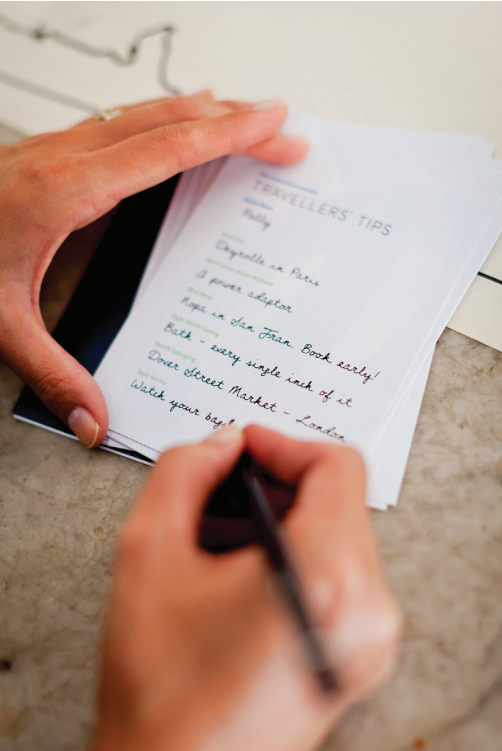 TRAVELLERS' TIPS
Polly
Deyrolle in Paris
A power adaptor
Nopa in San Fran. Book early!
Bath - every single inch of it
Dover Street Market - London
Best Advice
Watch your bags!